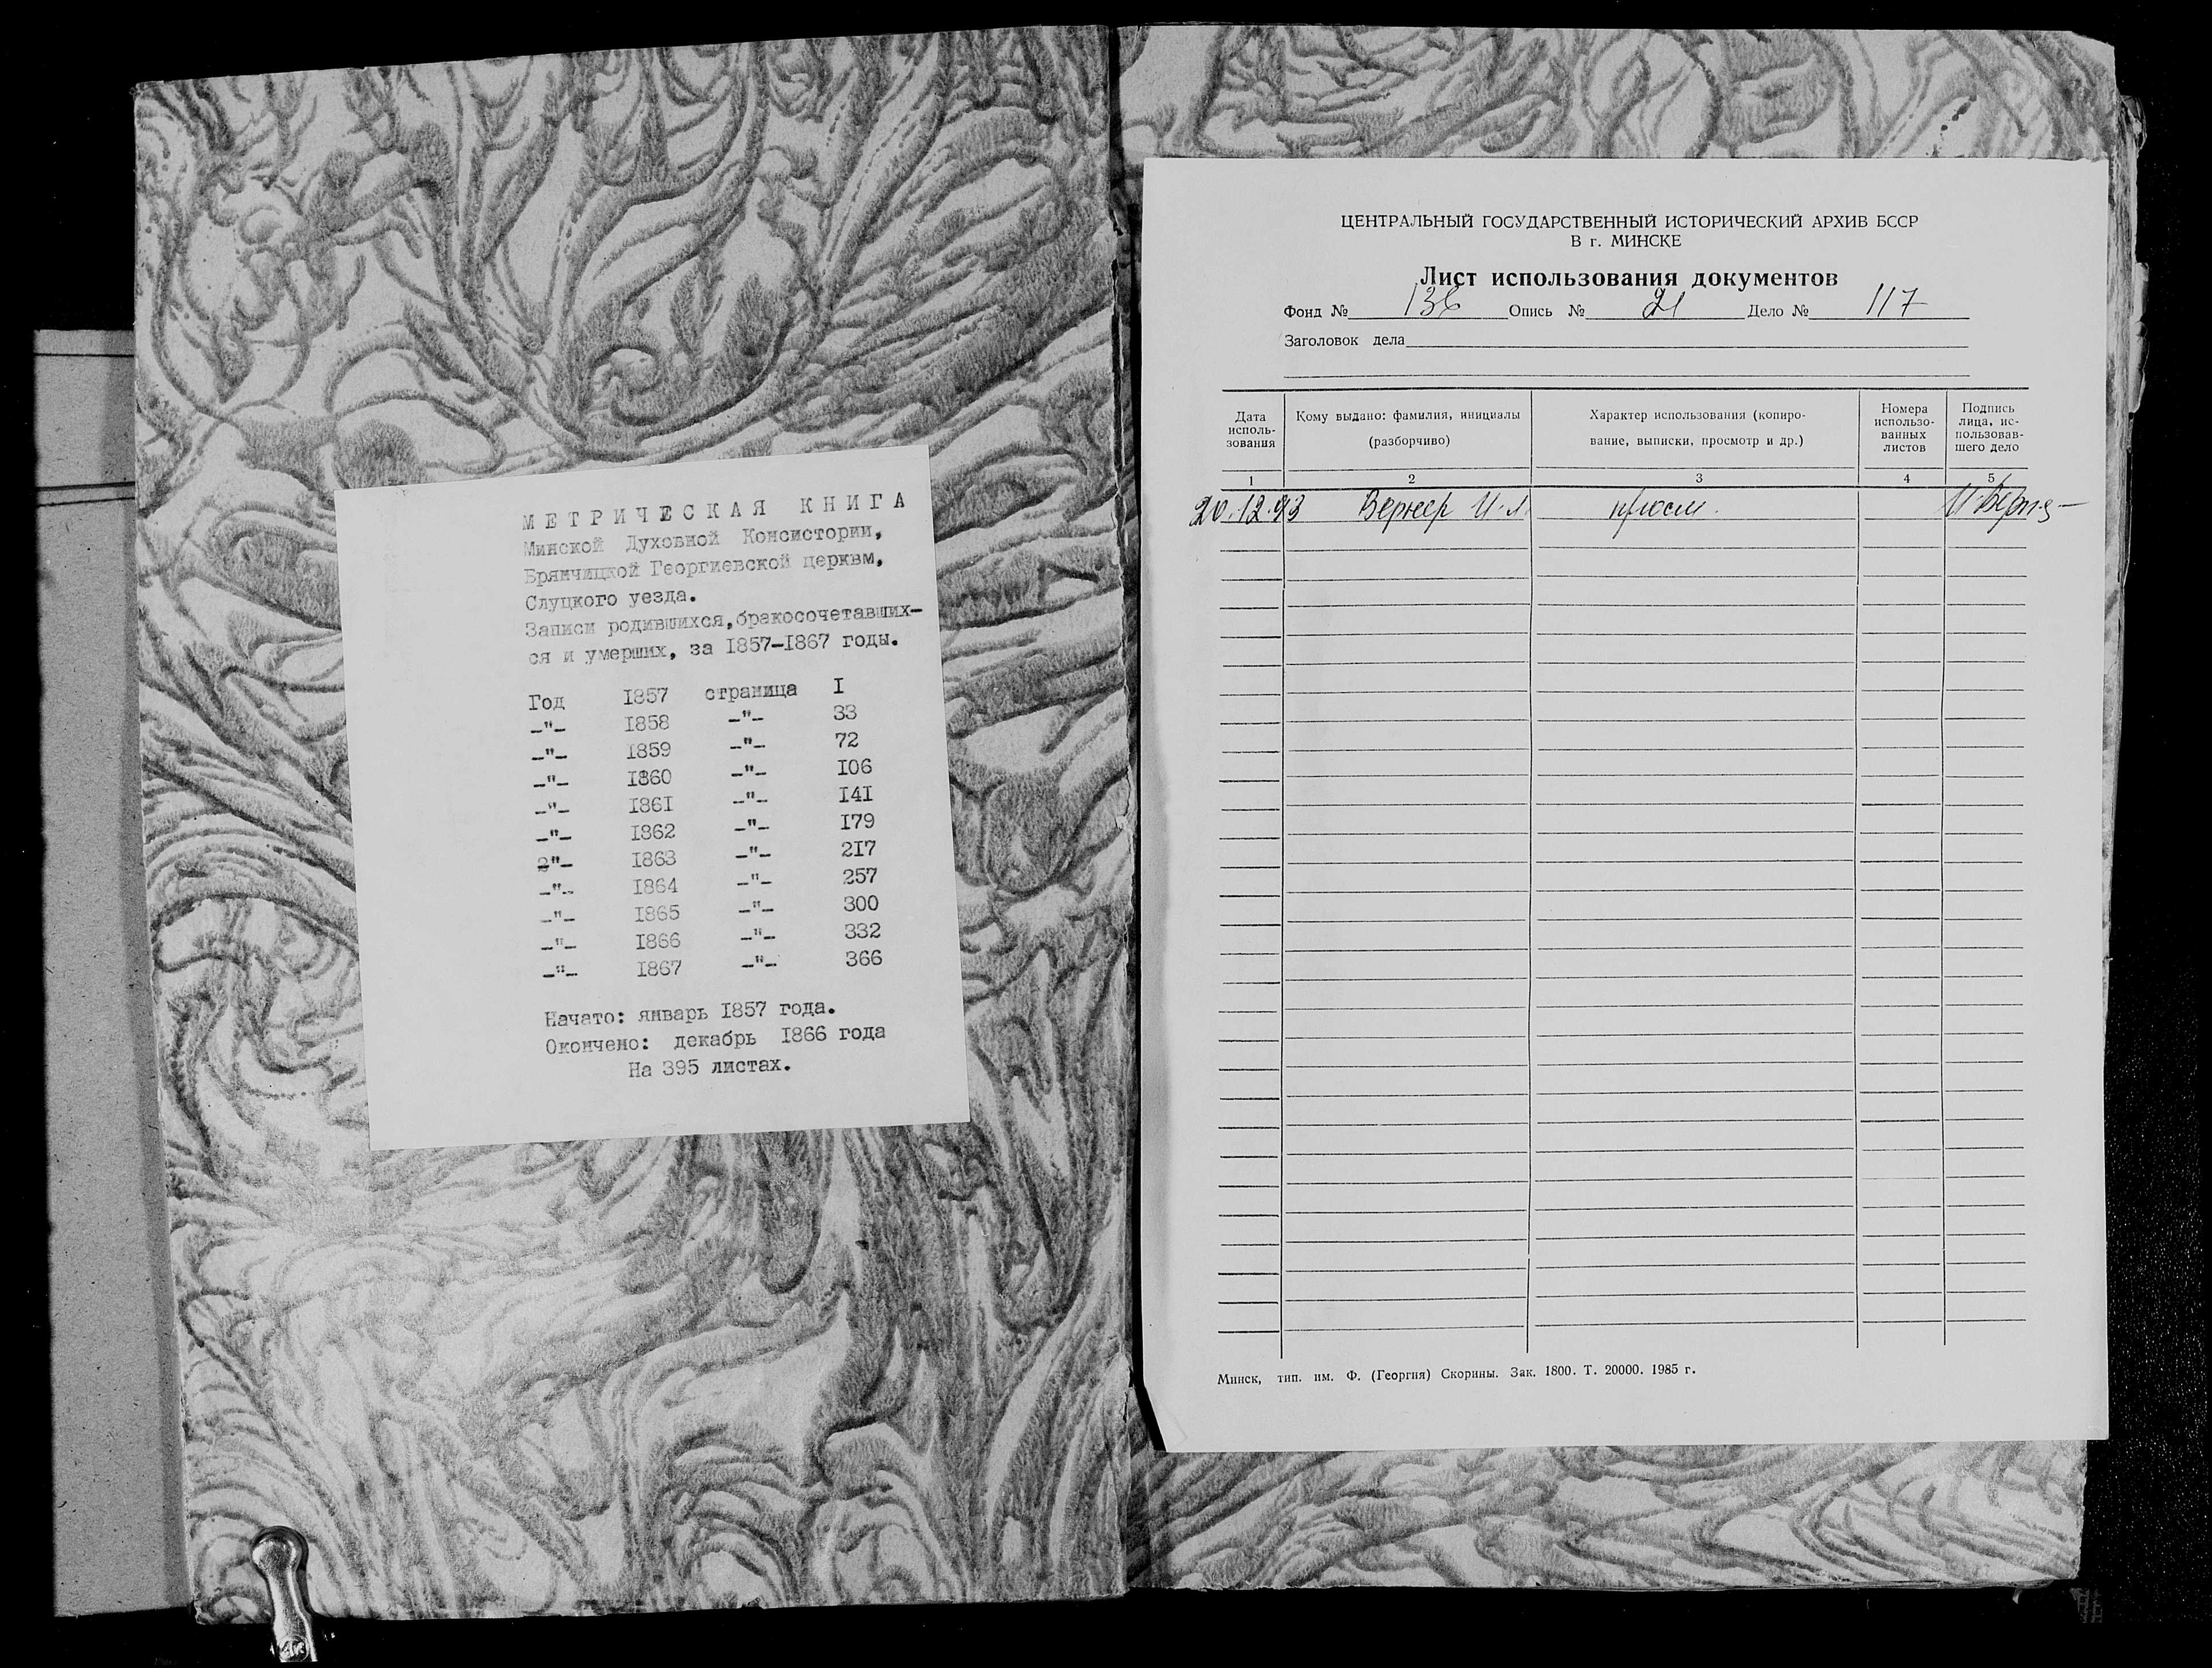 МЕТРИЧЕСКАЯ КНИГА
Минской Духовной Консистории,
Брянчицкой Георгиевской церквм,
Слуцкого уезда.
Записи родившихся,бракосочетавших-
ся и умерших, за 1857-1867 годы.
Год 1857 страница I
-"- 1858 -"- 33
-"- 1859 -"- 72
-"- 1860 -"- 106
-"- 1861 -"- 141
-"- 1862 -"- 179
-"- 1863 -"- 217
-"- 1864 -"- 257
-"- 1865 -"- 300
-"- 1866 -"- 332
-"- 1867 -"- 366
Начато: январь 1857 года.
Окончено: декабрь 1866 года
На 395 листах.
ЦЕНТРАЛЬНЫЙ ГОСУДАРСТВЕННЫЙ ИСТОРИЧЕСКИЙ АРХИВ БССР
В г. МИНСКЕ
Лист использования документов
Фонд № 136 Опись № 21 Дело № 117
Заголовок дела
Дата исполь-зования
Кому выдано: фамилия, инициалы
(разборчиво)
Характер использования (копиро-
вание, выписки, просмотр и др.)
Номера
использо-
ванных
листов
Подпись
лица, ис-
пользовав-
шего дело
1 2 3 4 5
20.12.93 Вернер И.Л. просм.
Минск, тип. им. Ф. (Георгия) Скорины. Зак. 1800. Т. 20000. 1985 г.